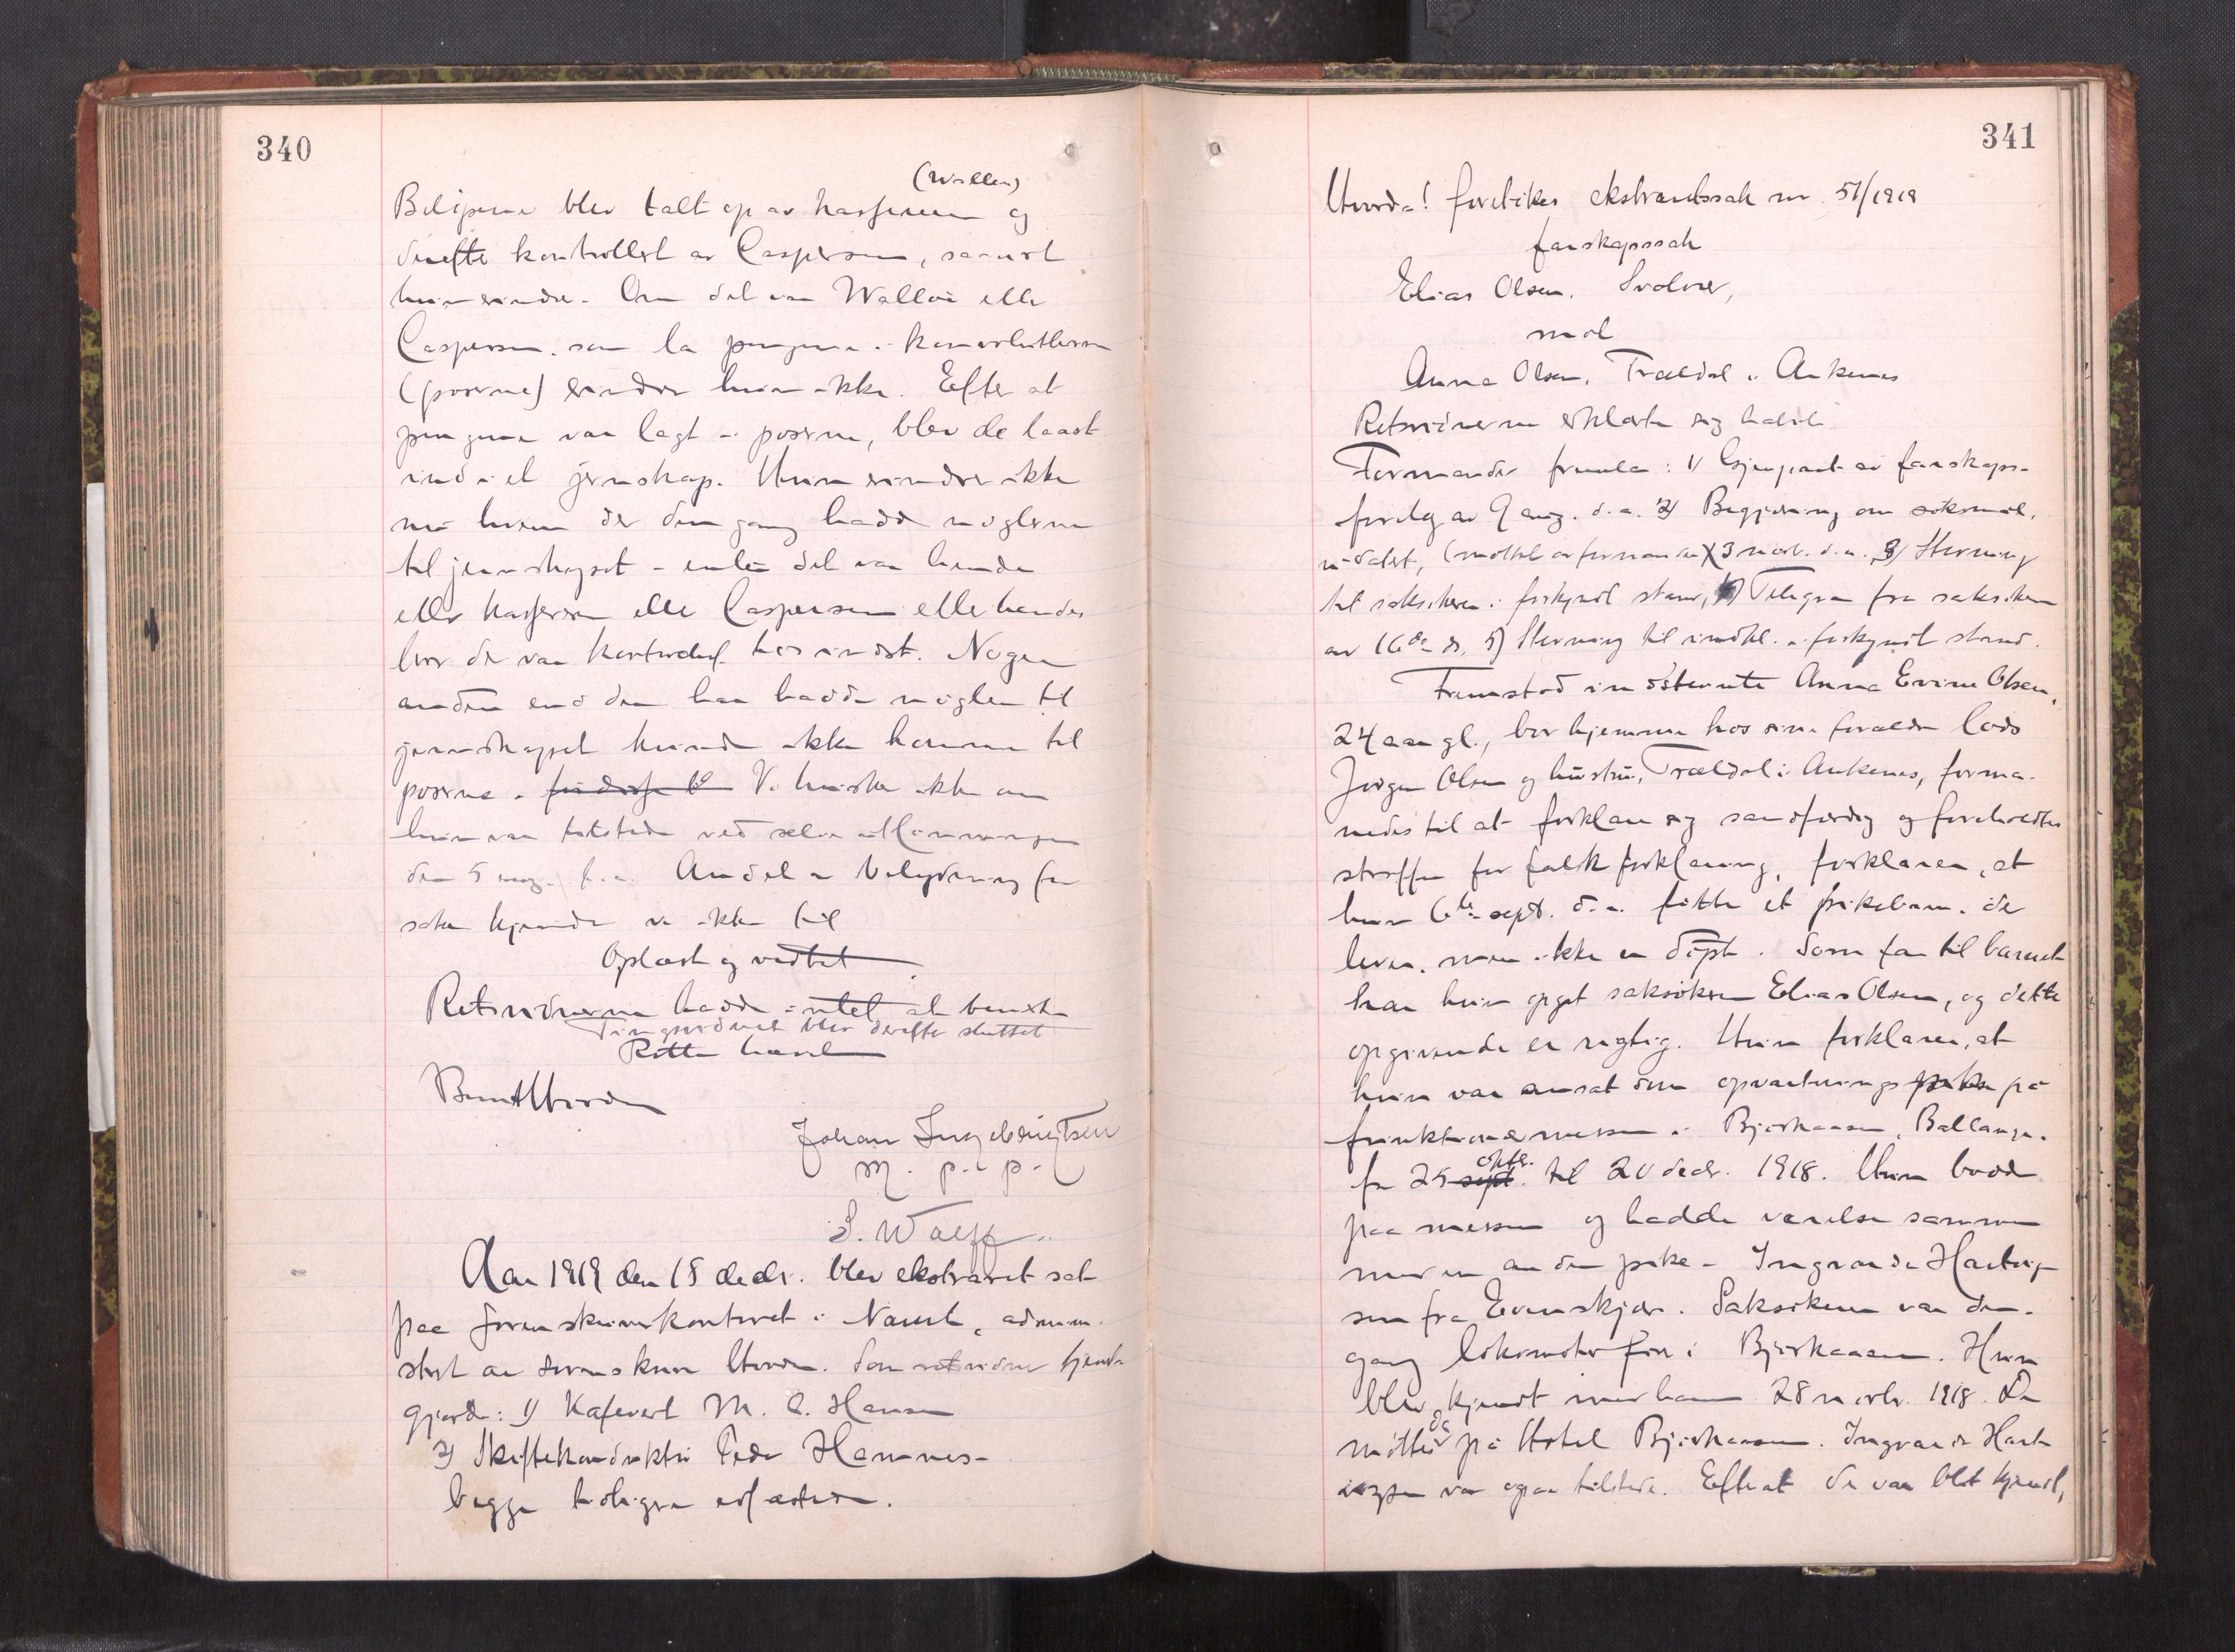 340
(Walløe)
Beløpene blev talt op av kassereren og
derefter kontrollert av Caspersen, saavidt
hun erindrer. Om det var Walløe eller
Caspersen, som la pengene i konvolutterne
(poserne) erindrer hun ikke. Efter at
pengene var lagt i poserne, blev de laast
ind i et jernskap. Hun erindrer ikke
nu hvem der den gang hadde nøglerne
til jernskapet - enten det var hende
eller kassereren eller Caspersen eller hendes
bror der var kontorchef
Nogen
anden end den hadde nøglen til
jernskapet kunde ikke komme til
poserne. V. husker ikke om
hun var tilstede ved selve utlønningen
den 5 f.a. Andet av betydning for
saken kjender v. ikke til
Oplæst og vedtat
Retsvidnerne hadde intet at bemerke
Tingsvidnet blev derefter sluttet
Retten hævet
Johan Ingebrigtsen
m. p. p.
S. Wolff
Aar 1919 den 18 decbr. blev ekstraret sat
paa sorenskriverkontoret i Narvik, admini-
strert av sorenskriver. Som retsvidner tjeneste-
gjorde: 1) Kafévert M. C. Hansen
2) Skiftekonduktør Peder Hamnes-
begge tidligere edfæstede.
341
Hvorda! foretokes ekstraretssak nr 51/1919
farskapssak
Elias Olsen, Svolvær,
mot
Anna Olsen, Trældal i Ankenes
Retsvidnerne erklærte sig habile
Formanden fremla: 1) Gjenpart av farskaps-
forelæg av 9 aug. d.a. 2) Begjæring om søksmål,
udatert, (mottat av formanden) 3 novb. d.a. 3) Stevning
til saksøkeren i forkyndt stand, 4) Telegram fra saksøkeren
av 16de ds. 5) Stevning til indst. i forkyndt stand.
Fremstod indstevnte Anna Evine Olsen,
24 aar gl., bor hjemme hos sine forældre Lods
Jørgen Olsen og hustru, Trældal i Ankenes, forma-
nedes til at forklare sig sandfærdig og foreholdtes
straffen for falsk forklaring, forklarer, at
hun 6te sept. d.a. fødte et pikebarn, der
lever, men ikke er døpt. Som far til barnet
har hun opgit saksøkeren Elias Olsen, og dette
opgivende er rigtig. Hun forklarer, at
hun var ansat som opvartningspike på
funktionærmessen i Bjørkaasen, Ballangen
fra 25 sept. oktb. til 20 decbr. 1918. Hun bodde
paa messen og hadde værelse sammen
med en anden pike - Ingvarda Hartvig-
sen fra Evenskjær. Saksøkeren var den-
gang lokomotivfører i Bjørkaasen. Hun
blev kjendt med ham 28 novbr. 1918. De
møttes da på Hotel Bjørkaasen. Ingvarda Hart-
vigsen var ogsaa tilstede. Efterat de var blit kjendt,